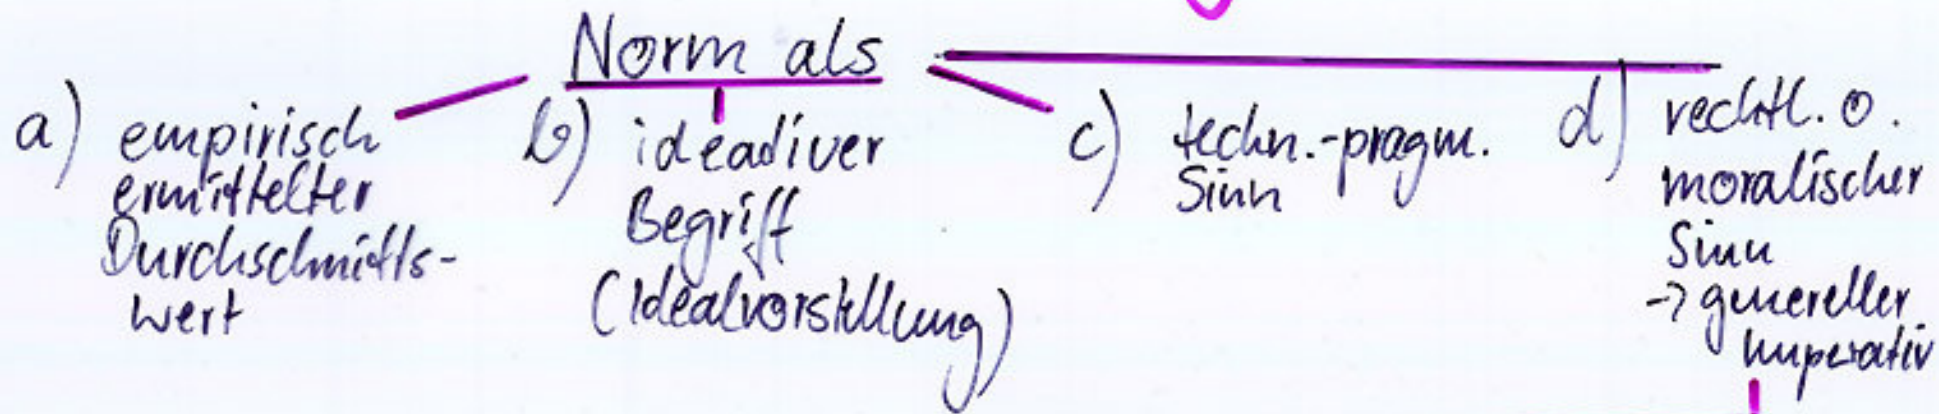 Norm als
a) empirisch
ermittelter
Durchschnitts-
wert
b) ideativer
Begriff
(Idealvorstellung)
c) techn.-pragm.
Sinn
d) rechtl. o.
moralischer
Sinn
-> genereller
Imperativ